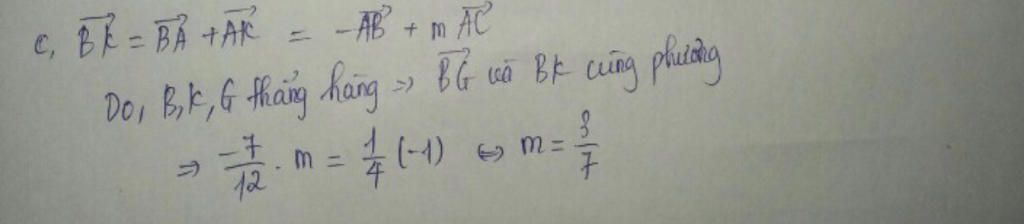 c, $\overrightarrow{BK} = \overrightarrow{BA} + \overrightarrow{AK} = -\overrightarrow{AB} + m\overrightarrow{AC}$
Do, B, K, G thẳng hàng => $\overrightarrow{BG}$ và BK cùng phương
$\Rightarrow \frac{-7}{12} \cdot m = \frac{1}{4}(-1) \Leftrightarrow m = \frac{3}{7}$